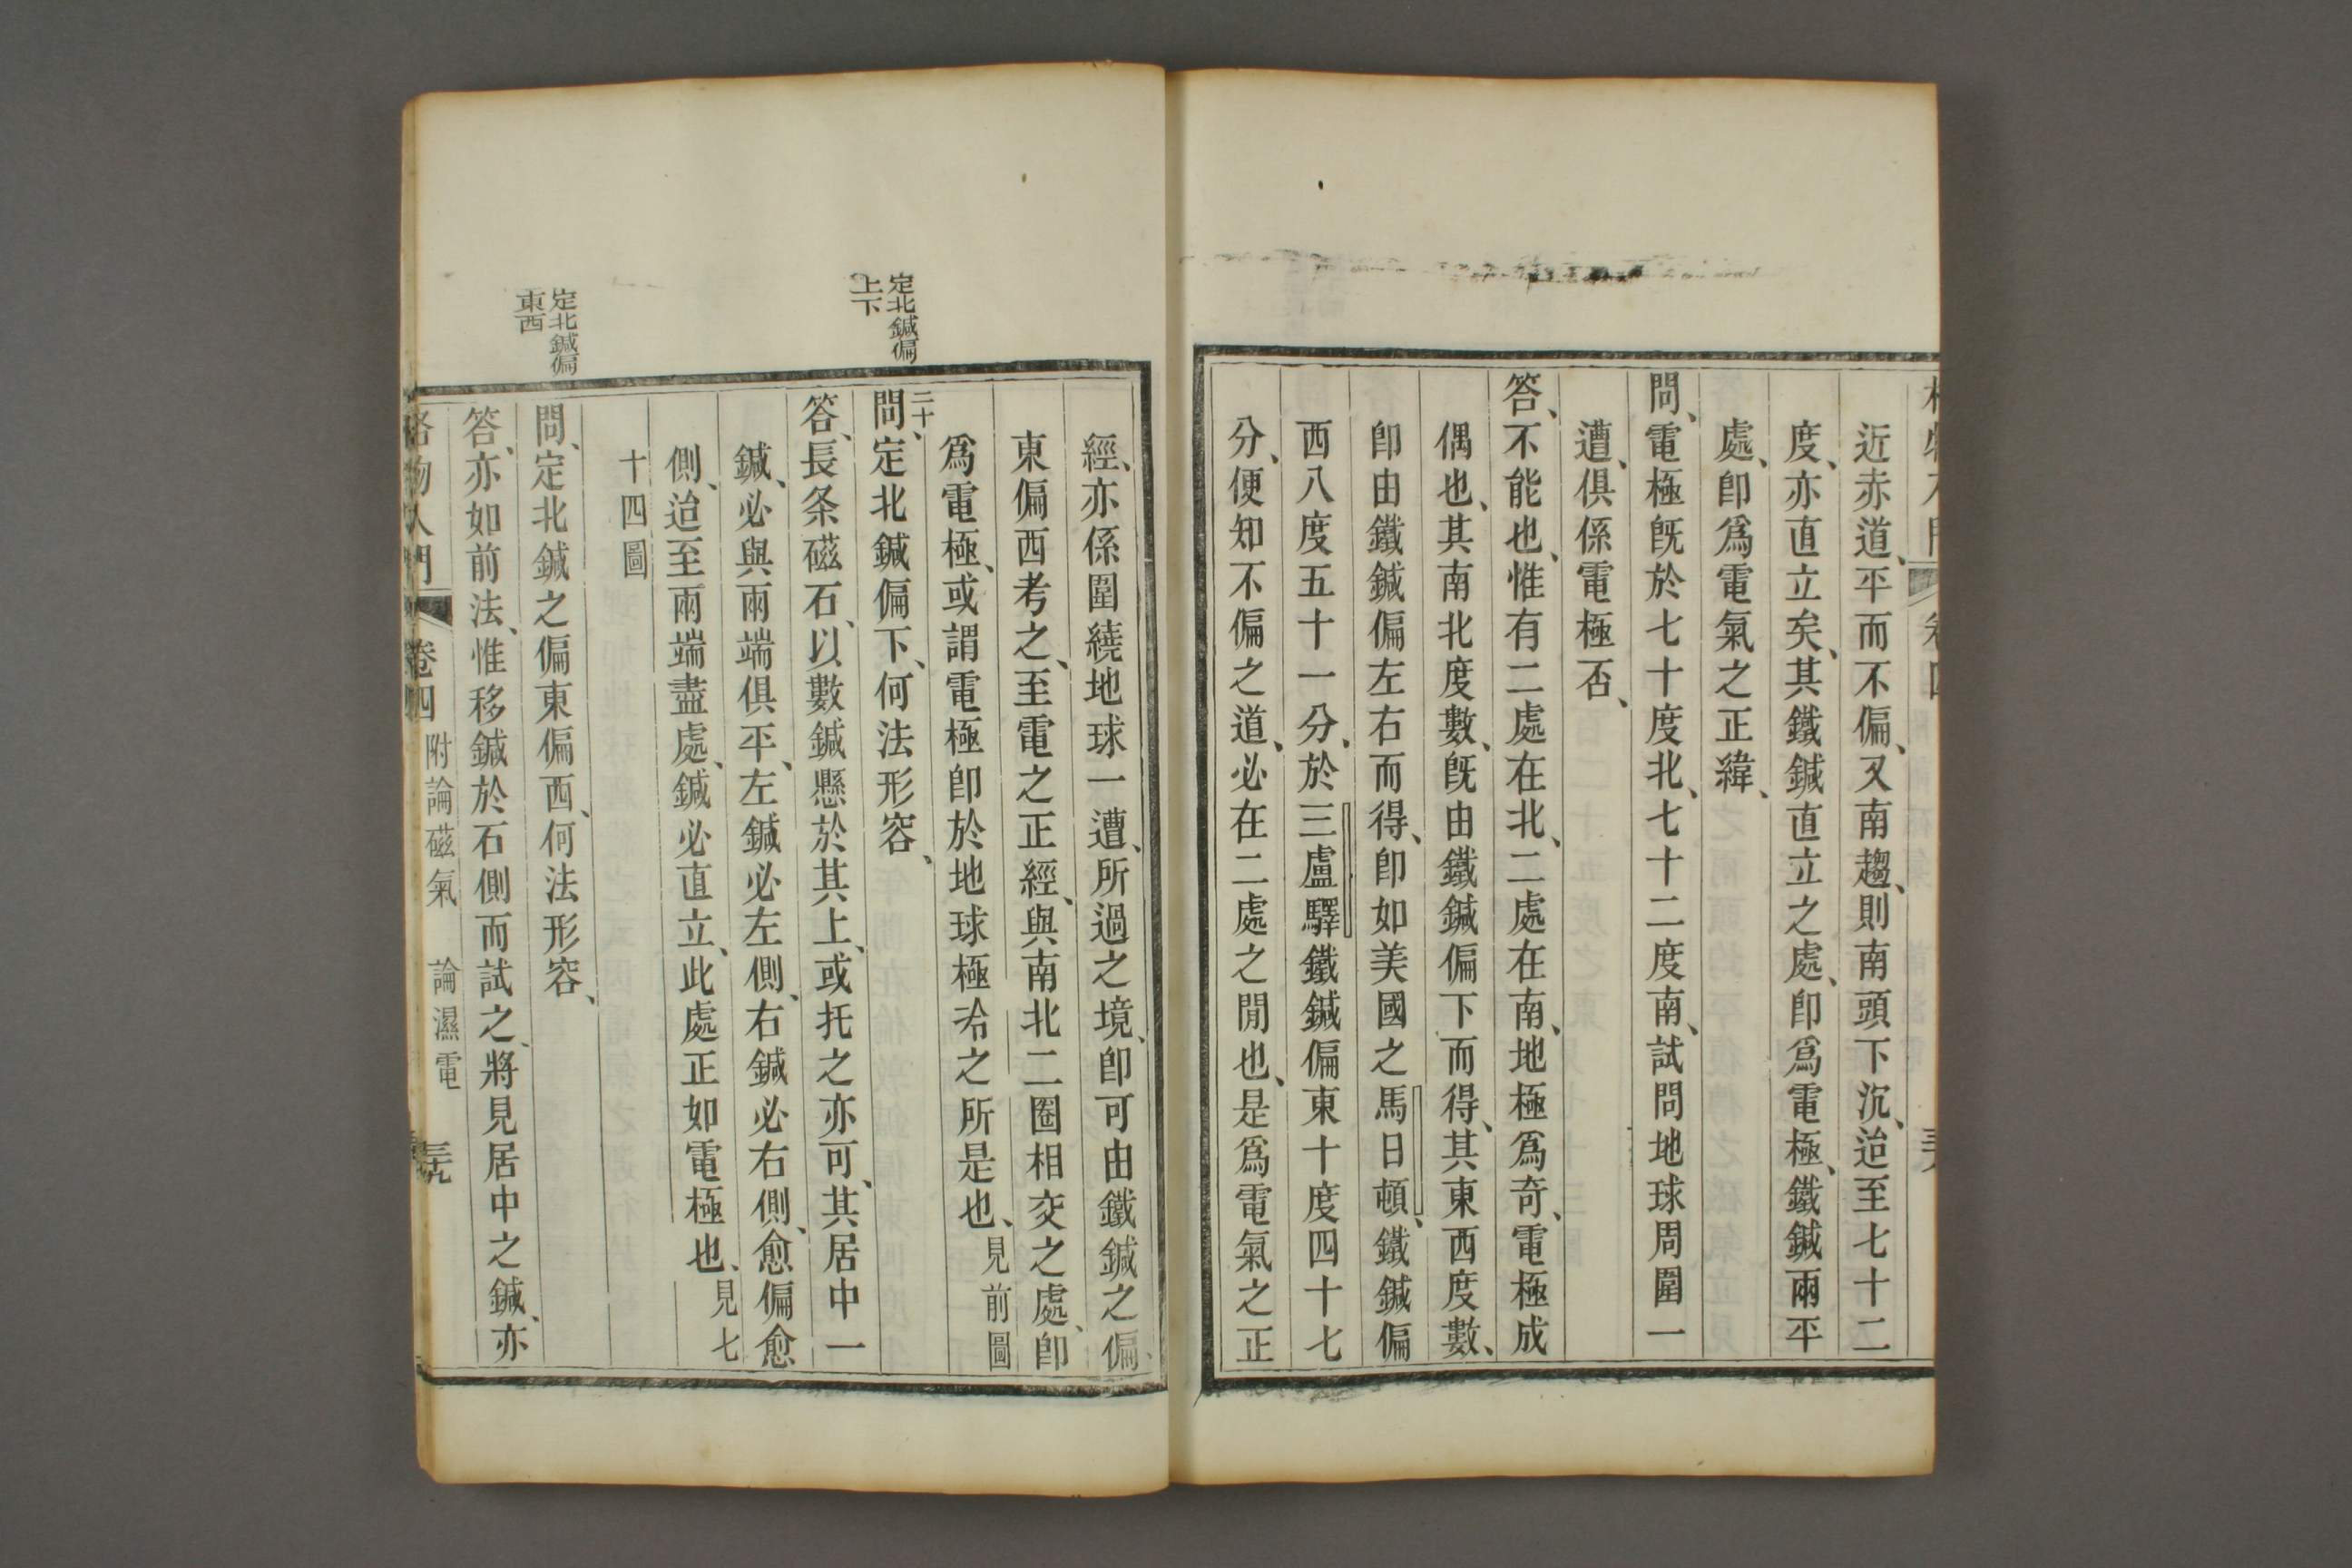 近赤道、平而不偏、又南趨、則南頭下沉、迨至七十二
度、亦直立矣、其鐵鍼直立之處、卽爲電極、鐵鍼兩平
處、卽爲電氣之正緯、
問、電極旣於七十度北、七十二度南、試問地球周圍一
遭、俱係電極否、
答、不能也、惟有二處在北、二處在南、地極爲奇、電極成
偶也、其南北度數、旣由鐵鍼偏下而得、其東西度數、
卽由鐵鍼偏左右而得、卽如美國之馬日頓、鐵鍼偏
西八度五十一分、於三盧驛鐵鍼偏東十度四十七
分、便知不偏之道、必在二處之閒也、是爲電氣之正
經、亦係圍繞地球一遭、所過之境、卽可由鐵鍼之偏
東偏西考之、至電之正經、與南北二圈相交之處、卽
爲電極、或謂電極卽於地球極冷之所是也、見前圖
定北鍼偏
上下
二十、
問、定北鍼偏下、何法形容、
答、長条磁石、以數鍼懸於其上、或托之亦可、其居中一
鍼、必與兩端俱平、左鍼必左側、右鍼必右側、愈偏愈
側、迨至兩端盡處、鍼必直立、此處正如電極也、見七
十四圖
定北鍼偏
東西
問、定北鍼之偏東偏西、何法形容、
答、亦如前法、惟移鍼於石側而試之、將見居中之鍼、亦
格物入門 卷四 附論磁氣 論濕電 三九